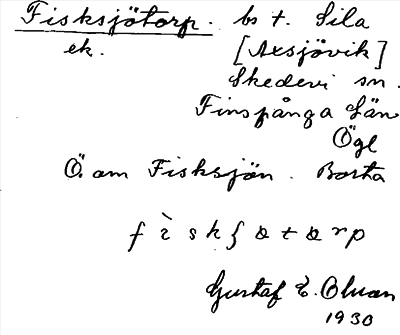 Fisksjötorp. bs t. Sila
ek. [Axsjövik]
Skedevi sn.
Finspånga Län
Ögl
Ö. om Fisksjön. Borta
f ì s k ʃ ɵ t ɵ r p
Gustaf E. Olman
1930